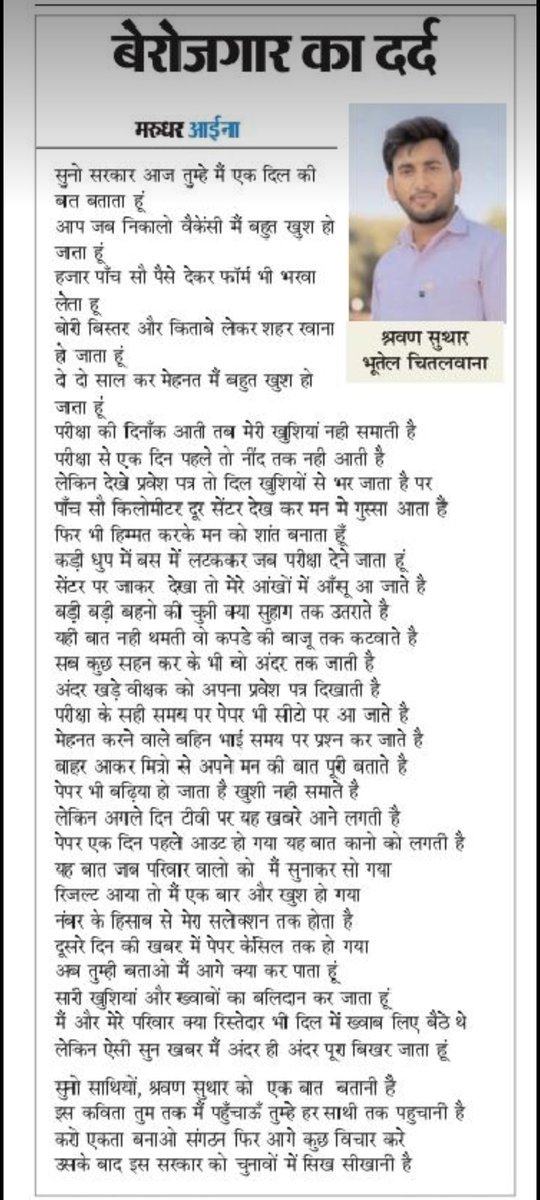 बेरोजगार का दर्द
मरुधर आईना
श्रवण सुथार
भूतेल चितलवाना
सुनो सरकार आज तुम्हे मैं एक दिल की
बात बताता हूं
आप जब निकालो वैकेंसी मैं बहुत खुश हो
जाता हूं
हजार पाँच सौ पैसे देकर फॉर्म भी भरवा
लेता हू
बोरी बिस्तर और किताबे लेकर शहर रवाना
हो जाता हूं
दे दो साल कर मेहनत मैं बहुत खुश हो
जाता हूं
परीक्षा की दिनाँक आती तब मेरी खुशियां नही समाती है
परीक्षा से एक दिन पहले तो नींद तक नही आती है
लेकिन देखे प्रवेश पत्र तो दिल खुशियों से भर जाता है पर
पाँच सौ किलोमीटर दूर सेंटर देख कर मन मे गुस्सा आता है
फिर भी हिम्मत करके मन को शांत बनाता हूँ
कड़ी धुप में बस में लटककर जब परीक्षा देने जाता हूं
सेंटर पर जाकर देखा तो मेरे आंखों में आँसू आ जाते है
बड़ी बड़ी बहनो की चुन्नी क्या सुहाग तक उतराते है
यही बात नही थमती वो कपडे की बाजू तक कटवाते है
सब कुछ सहन कर के भी वो अंदर तक जाती है
अंदर खड़े वीक्षक को अपना प्रवेश पत्र दिखाती है
परीक्षा के सही समय पर पेपर भी सीटो पर आ जाते है
मेहनत करने वाले बहिन भाई समय पर प्रश्न कर जाते है
बाहर आकर मित्रो से अपने मन की बात पूरी बताते है
पेपर भी बढ़िया हो जाता है खुशी नही समाते है
लेकिन अगले दिन टीवी पर यह खबरे आने लगती है
पेपर एक दिन पहले आउट हो गया यह बात कानो को लगती है
यह बात जब परिवार वालो को मैं सुनाकर सो गया
रिजल्ट आया तो मैं एक बार और खुश हो गया
नंबर के हिसाब से मेरा सलेक्शन तक होता है
दूसरे दिन की खबर में पेपर केंसिल तक हो गया
अब तुम्ही बताओ मैं आगे क्या कर पाता हूं
सारी खुशियां और ख्वाबों का बलिदान कर जाता हूं
मैं और मेरे परिवार क्या रिस्तेदार भी दिल में ख्वाब लिए बैठे थे
लेकिन ऐसी सुन खबर मैं अंदर ही अंदर पूरा बिखर जाता हूं
सुनो साथियों, श्रवण सुथार को एक बात बतानी है
इस कविता तुम तक मैं पहुँचाऊँ तुम्हे हर साथी तक पहुचानी है
करो एकता बनाओ संगठन फिर आगे कुछ विचार करे
उसके बाद इस सरकार को चुनावों में सिख सीखानी है